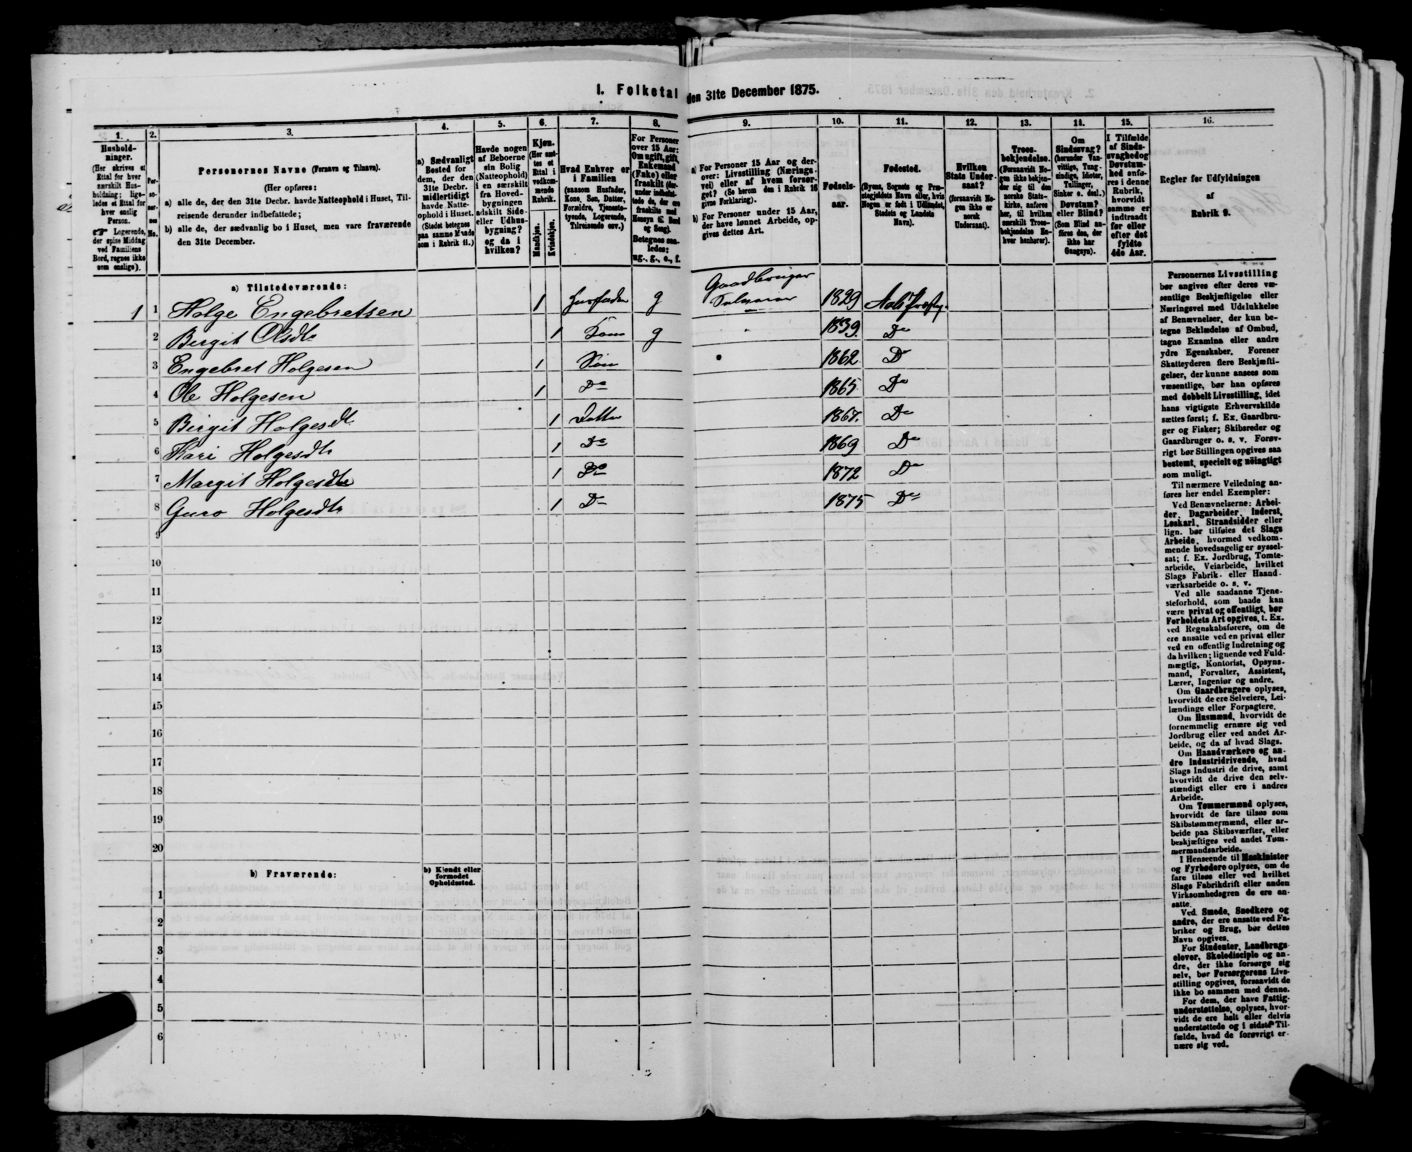 1. Folketal den 31te December 1875.
1.
Hushold-
ninger.
(Her skrives et
Ettal for hver
særskilt Hus-
holdning; lige-
ledes et Ettal for
hver enslig
Person.
Logerende,
der spise Middag
ved Familiens
Bord, regnes ikke
som enslige).
2.
Per-
so-
ner-
nes
No.
3.
Personernes Navne (Fornavn og Tilnavn).
(Her opføres:
a) alle de, der den 31te Decbr. havde Natteophold i Huset, Til-
reisende derunder indbefattede;
b) alle de, der sædvanlig bo i Huset, men vare fraværende
den 31te December.
4.
a) Sædvanligt
Bosted for
dem, der den
31te Decbr.
midlertidigt
havde Natte-
ophold i Huset.
(Stedet betegnes
paa samme Maade
som i Rubrik 11.)
5.
Havde nogen
af Beboerne
sin Bolig
(Natteophold)
i en særskilt
fra Hoved-
bygningen
adskilt Side-
eller Udhus-
bygning?
og da i
hvilken?
6.
Kjøn.
(Her sæt-
tes et
Ettal i
vedkom-
mende
Rubrik.
Mandkjøn.
Kvindekjøn.
7.
Hvad Enhver er
i Familien
(saasom Husfader,
Kone, Søn, Datter,
Forældre, Tjeneste-
tyende, Logerende,
Tilreisende osv.)
8.
For Personer
over 15 Aar:
Om ugift, gift,
Enkemand
(Enke) eller
fraskilt
Betegnes saa-
ledes:
ug., g., e., f.
9.
a) For Personer 15 Aar og der-
over: Livsstilling (Nærings-
vei) eller af hvem forsør-
get? (Se herom den i Rubrik 16
givne Forklaring).
b) For Personer under 15 Aar,
der have lønnet Arbeide, op-
gives dettes Art.
10.
Fødsels-
aar.
11.
Fødested.
(Byens, Sognets og Præ-
stegjeldets Navn eller, hvis
Nogen er født i Udlandet,
Stedets og Landets
Navn).
12.
Hvilken
Stats Under-
saat?
(forsaavidt No-
gen ikke er
norsk
Undersaat).
13.
Troes-
bekjendelse.
(Forsaavidt No-
gen ikke bekjen-
der sig til den
norske Stats-
kirke, anføres
her, til hvilken
særskilt Troes-
bekjendelse En-
hver henhører).
14.
Om
Sindssvag?
(herunder Van-
vittige, Tung-
sindige, Idioter,
Tullinger,
Sinker o. desl.)
Døvstum?
eller Blind?
(Som Blind an-
føres den, der
ikke har
Gangsyn).
15.
I Tilfælde
af Sinds-
svaghed og
Døvstum-
hed anfø-
res i denne
Rubrik,
hvorvidt
samme er
indtraadt
før eller
efter det
fyldte
4de Aar.
16.
Regler for Udfyldningen
af
Rubrik 9.
a) Tilstedeværende:
1 1 Holge Engebretsen 1 Husfader g Gaardbruger Selveier 1829 Aals Præstg.
2 Birgit Olsdtr 1 Kone g 1839. Do
3 Engebret Holgesen 1 Søn 1862 Do
4 Ole Holgesen 1 Do 1865. Do
5 Birgit Holgesdtr 1 Datter 1867. Do
6 Kari Holgesdtr 1 Do 1869 Do
7 Margit Holgesdtr 1 Do 1872 Do
8 Guro Holgesdtr 1 Do 1875 Do
9
10
11
12
13
14
15
16
17
18
19
20
b) Fraværende:
b) Kjendt eller
formodet
Opholdssted.
1
2
3
4
5
6
Personernes Livsstilling
bør angives efter deres væ-
sentlige Beskjæftigelse eller
Næringsvei med Udelukkelse
af Benævnelser, der kun be-
tegne Bekledelse af Ombud,
tagne Examina eller andre
ydre Egenskaber. Forener
Skatteyderen flere Beskjæfti-
gelser, der kunne ansees som
væsentlige, bør han opføres
med dobbelt Livsstilling, idet
hans vigtigste Erhvervskilde
sættes først; f. Ex. Gaardbru-
ger og Fisker; Skibsreder og
Gaardbruger o. s. v. Forøv-
rigt bør Stillingen opgives saa
bestemt, specielt og nøiagtigt
som muligt.
Til nærmere Veiledning an-
føres her endel Exempler:
Ved Benævnelserne: Arbei-
der, Dagarbeider, Inderst,
Løskarl, Strandsidder eller
lign. bør tilføies det Slags
Arbeide, hvormed vedkom-
mende hovedsagelig er syssel-
sat; f. Ex. Jordbrug, Tomte-
arbeide, Veiarbeide, hvilket
Slags Fabrik- eller Haand-
værksarbeide o. s. v.
Ved alle saadanne Tjene-
steforhold, som baade kan
være privat og offentligt, bør
Forholdets Art opgives, t. Ex.
ved Regnskabsførere, om de
ere ansatte ved en privat eller
ved en offentlig Indretning og
da hvilken; lignende ved Fuld-
mægtig, Kontorist, Opsyns-
mand, Forvalter, Assistent,
Lærer, Ingeniør og andre.
Om Gaardbrugere oplyses,
hvorvidt de ere Selveiere, Lei-
lændinge eller Forpagtere.
Om Husmænd, hvorvidt de
fornemmelig ernære sig ved
Jordbrug eller ved andet Ar-
beide, og da af hvad Slags.
Om Haandværkere og an-
dre Industridrivende, hvad
Slags Industri de drive, samt
hvorvidt de drive den selv-
stændigt eller ere i andres
Arbeide.
Om Tømmermænd oplyses,
hvorvidt de fare tilsøs som
Skibstømmermænd, eller ar-
beide paa Skibsværfter, eller
beskjæftiges ved andet Tøm-
mermandsarbeide.
I Henseende til Maskinister
og Fyrbødere oplyses, om de
fare tilsøs eller ved hvilket
Slags Fabrikdrift eller anden
Virksomhed de ere an-
satte.
Ved Smede, Snedkere og
andre, der ere ansatte ved Fa-
briker og Brug, bør dettes
Navn opgives.
For Studenter, Landbrugs-
elever, Skoledisciple og an-
dre, der ikke forsørge sig
selv, bør Forsørgerens Livs-
stilling opgives, forsaavidt de
ikke bo sammen med denne.
For dem, der have Fattig-
understøttelse, oplyses, hvor-
vidt de ere helt eller delvis
understøttede og i sidste Til-
fælde, hvad de forøvrigt er-
nære sig ved.